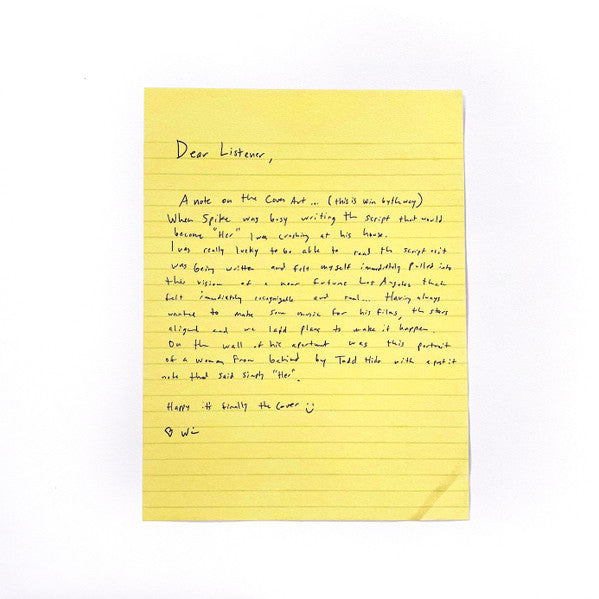 Dear Listener,
A note on the Cover Art... (this is Win bythway)
When Spike was busy writing th script that would
become "Her" I was crashing at his house.
I was really lucky to be able to read the script as it
was being written and felt myself immediately pulled into
this vision of a near future Los Angeles that
felt immediately recognizable and real... Having always
wanted to make some music for his films, th stars
aligned and we laid plans to make it happen.
On the wall of his apartment was this portrait
of a woman from behind by Todd Hido with a post it
note that said simply "Her".
Happy it's finally the cover :)
♡ Win